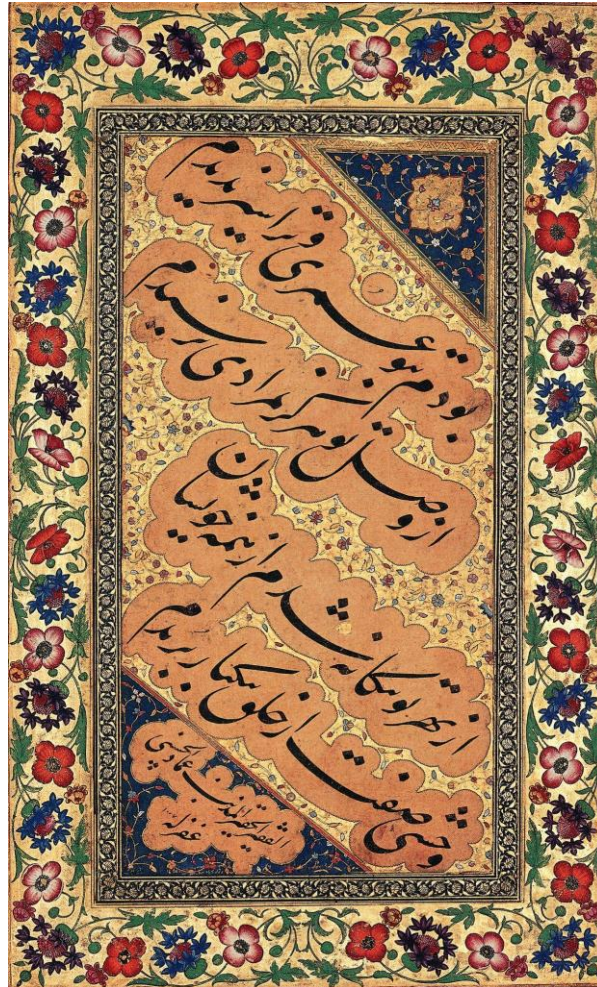 بودم بتو عمری و ترا سیر ندیدم
از وصل تو هرگز بمرادی نرسیدم
از بهر تو بیگانه شدم از همه خویشان
وحشی صفت از خلق بیکبار بریدم
الفقیر الحقیر المذنب عماد الحسنی
غفر له